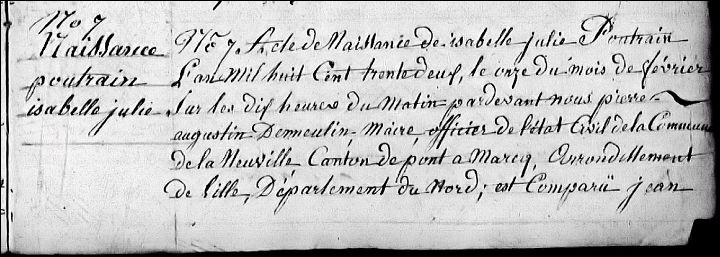 No 7
Naissance
poutrain
isabelle julie
No 7 Acte de Naissance de isabelle julie Poutrain
L'an Mil huit Cent trente deux, le onze du mois de février
sur les dix heures du Matin pardevant nous pierre
augustin Demeulin Maire officier de l'état Civil de la Commune
de la Neuville Canton de pont a Marcq, Arrondissement
de lille, Département du Nord; est Comparü jean